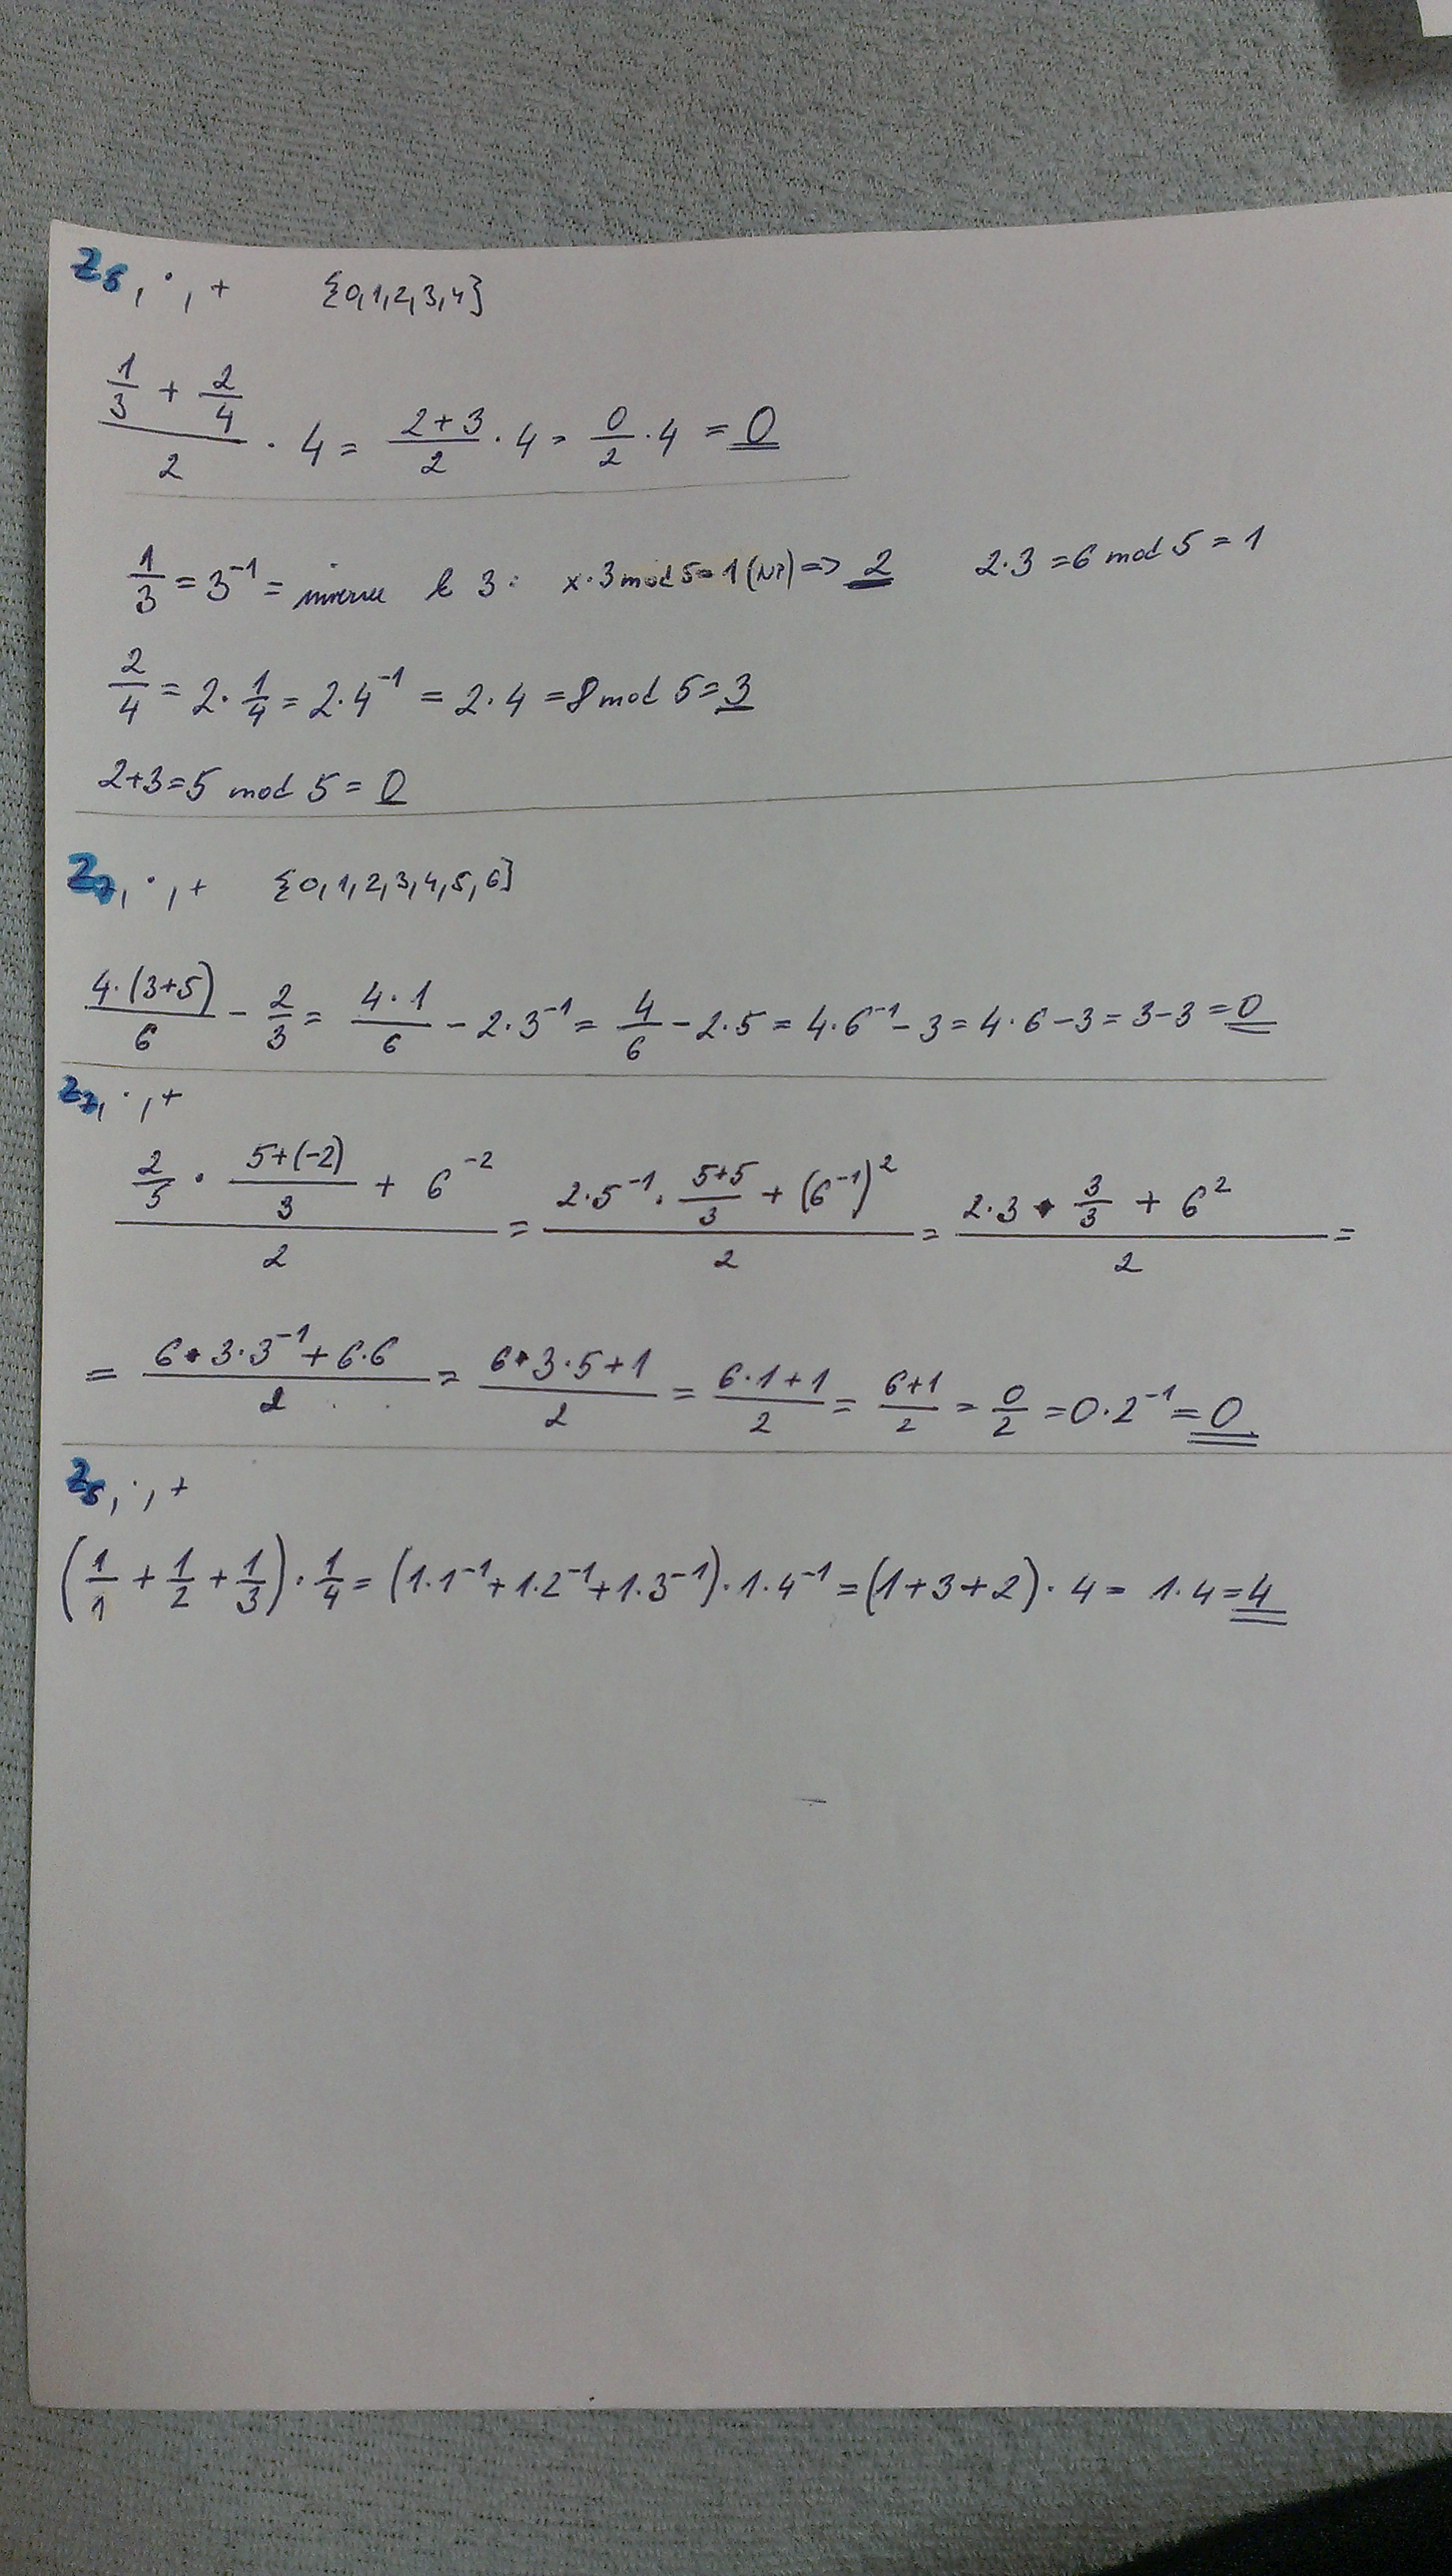 Z₅, ·, + {0,1,2,3,4}
(1/3 + 2/4)/2 · 4 = (2+3)/2 · 4 = 0/2 · 4 = 0
1/3 = 3⁻¹ = inverse k 3: x·3 mod 5 = 1 (NP) => 2 2·3 = 6 mod 5 = 1
2/4 = 2·1/4 = 2·4⁻¹ = 2·4 = 8 mod 5 = 3
2+3=5 mod 5 = 0
Z₇, ·, + {0,1,2,3,4,5,6}
4·(3+5)/6 - 2/3 = 4·1/6 - 2·3⁻¹ = 4/6 - 2·5 = 4·6⁻¹ - 3 = 4·6 - 3 = 3-3 = 0
Z₇, ·, +
(2/5 · (5+(-2))/3 + 6⁻²)/2 = (2·5⁻¹ · (5+5)/3 + (6⁻¹)²)/2 = (2·3 · 3/3 + 6²)/2 =
= (6·3·3⁻¹ + 6·6)/2 = (6·3·5+1)/2 = (6·1+1)/2 = (6+1)/2 = 0/2 = 0·2⁻¹ = 0
Z₅, ·, +
(1/1 + 1/2 + 1/3) · 1/4 = (1·1⁻¹ + 1·2⁻¹ + 1·3⁻¹) · 1·4⁻¹ = (1+3+2) · 4 = 1·4 = 4